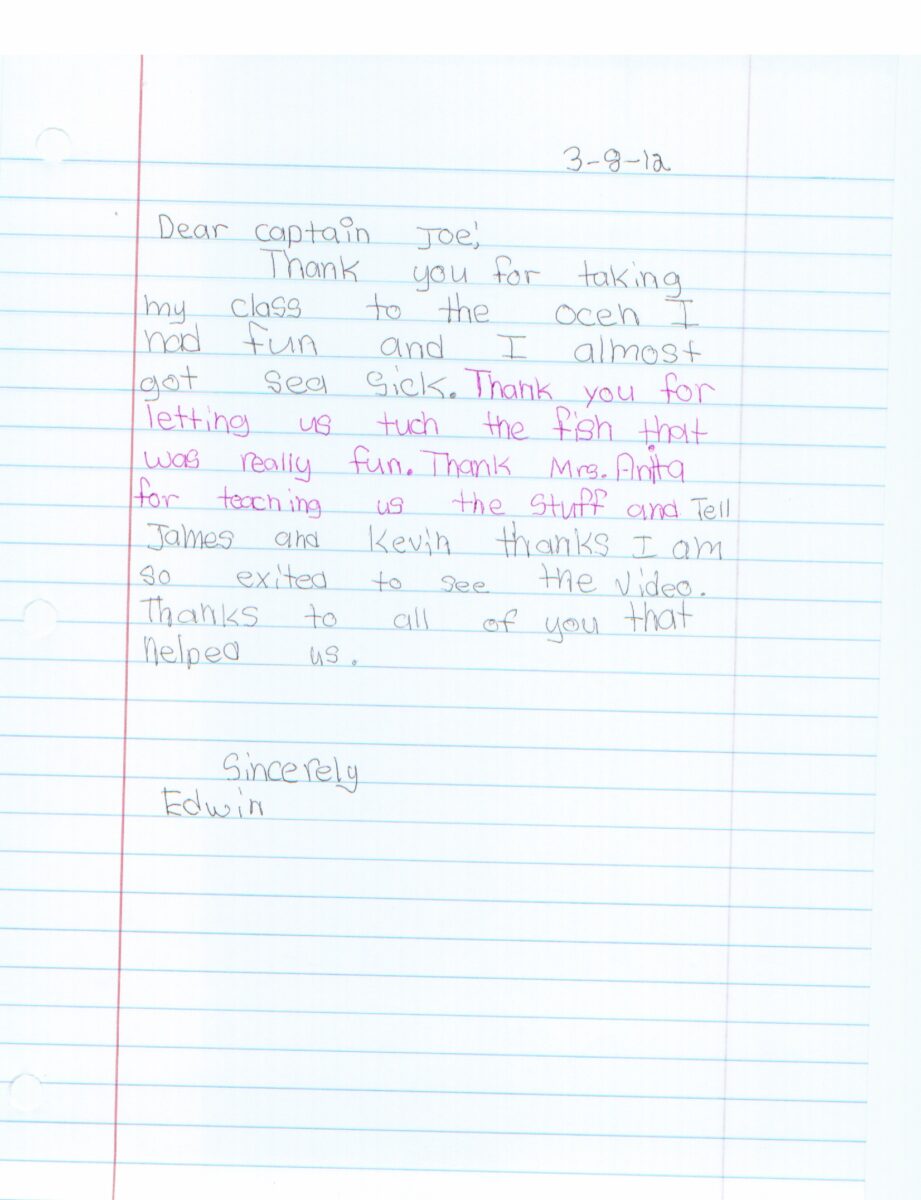 3-9-12
Dear captain Joe,
Thank you for taking
my class to the ocen I
had fun and I almost
got sea sick. Thank you for
letting us tuch the fish that
was really fun. Thank Mrs. Anita
for teaching us the stuff and Tell
James and Kevin thanks I am
so exited to see the video.
Thanks to all of you that
helped us.
Sincerely
Edwin